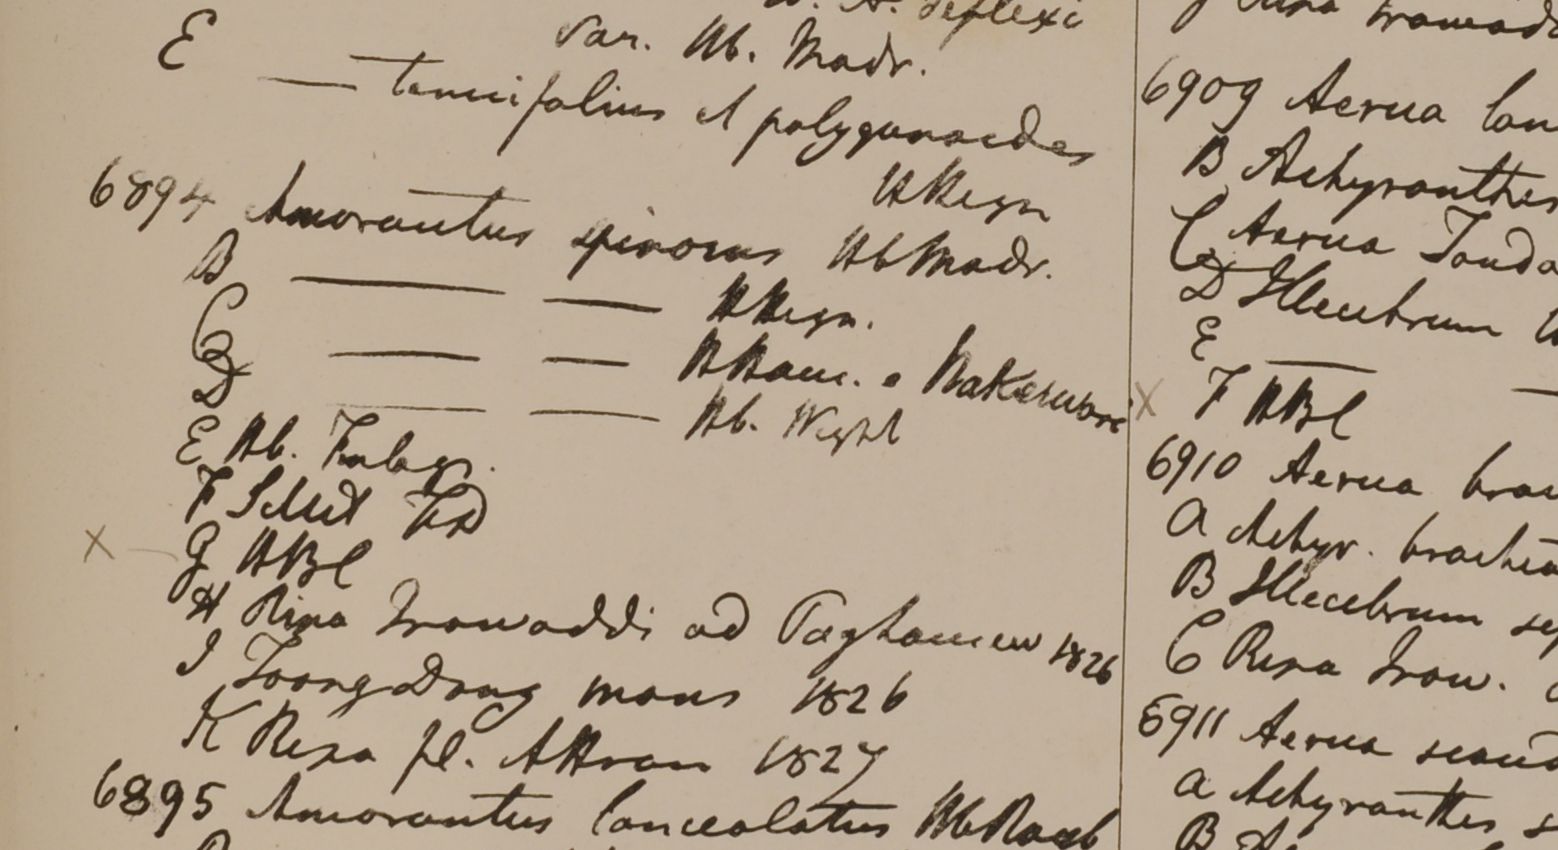 Var. Hb. Madr.
E — tenuifolius et polygonoides
HHeyn
6894 Amarantus spinosus HbMadr.
B — — HHeyn.
C — — HHam. e
D — — Hb. Wight
E Hb. Finlays.
F Silhet FD
G HBC
H Ripa Irawaddi ad 1826
I Toongdong mons 1826
K Ripa fl. Attran 1827
6895 Amarantus lanceolatus HbRoxb
6909 Aerua lan
B Achyranthes
C Aerua
D Illecebrum
E — —
F HBC
6910 Aerua brac
a Achyr. brachia
B Illecebrum se
C Ripa Iraw.
6911 Aerua scand
a Achyranthes s
B